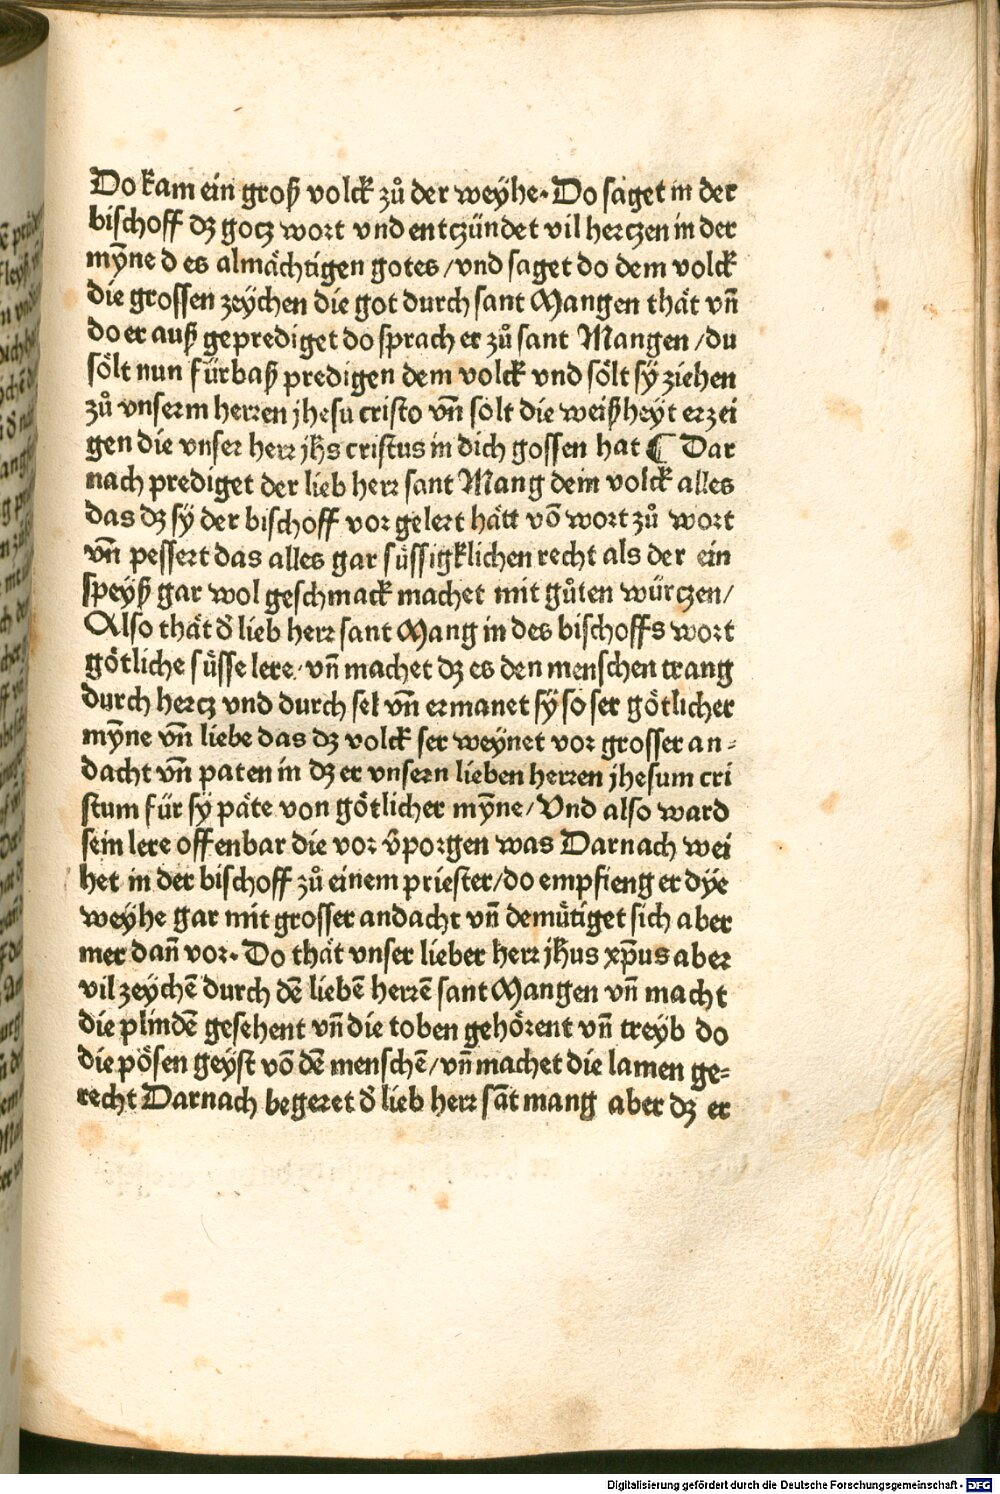 Do kam ein groß volck zů der weyhe· Do saget in der
bischoff dꝫ gotz wort vnd entczündet vil hertzen in der
mÿne d es almächtigen gotes /vnd saget do dem volck
die grossen zeychen die got durch sant Mangen thät vn̄
do er auß geprediget do sprach er zů sant Mangen /du
sölt nun fürbaß predigen dem volck vnd sölt sÿ ziehen
zů vnserm herren jhesu cristo vn̄ solt die weißheyt erzei
gen die vnser herr jhs cristus in dich gossen hat ¶ Dar
nach prediget der lieb herr sant Mang dem volck alles
das dꝫ sÿ der bischoff vor gelert hätt vō wort zů wort
vn̄ pessert das alles gar süssigklichen recht als der ein
speyß gar wol geschmack machet mit gůten würczen/
Also thät d̄ lieb herr sant Mang in des bischoffs wort
götliche süsse lere· vn̄ machet dꝫ es den menschen trang
durch hertz vnd durch sel vn̄ ermanet sÿ so ser götlicher
mÿne vn̄ liebe das dꝫ volck ser weynet vor grosser an⸗
dacht vn̄ paten in dꝫ er vnsern lieben herren jhesum cri
stum für sÿ päte von götlicher mÿne/ Vnd also ward
sein lere offenbar die vor v̄porgen was Darnach wei
het in der bischoff zů einem priester/do empfieng er dÿe
weyhe gar mit grosser andacht vn̄ demütiget sich aber
mer dan̄ vor· Do thät vnser lieber herr jhus xp̄us aber
vil zeychē durch dē liebē herrē sant Mangen vn̄ macht
die plindē gesehent vn̄ die toben gehörent vn̄ treyb do
die pösen geyst vō dē menschē/vn̄ machet die lamen ge⸗
recht Darnach begeret d̄ lieb herr sāt mang aber dꝫ er
Digitalisierung gefördert durch die Deutsche Forschungsgemeinschaft - DFG